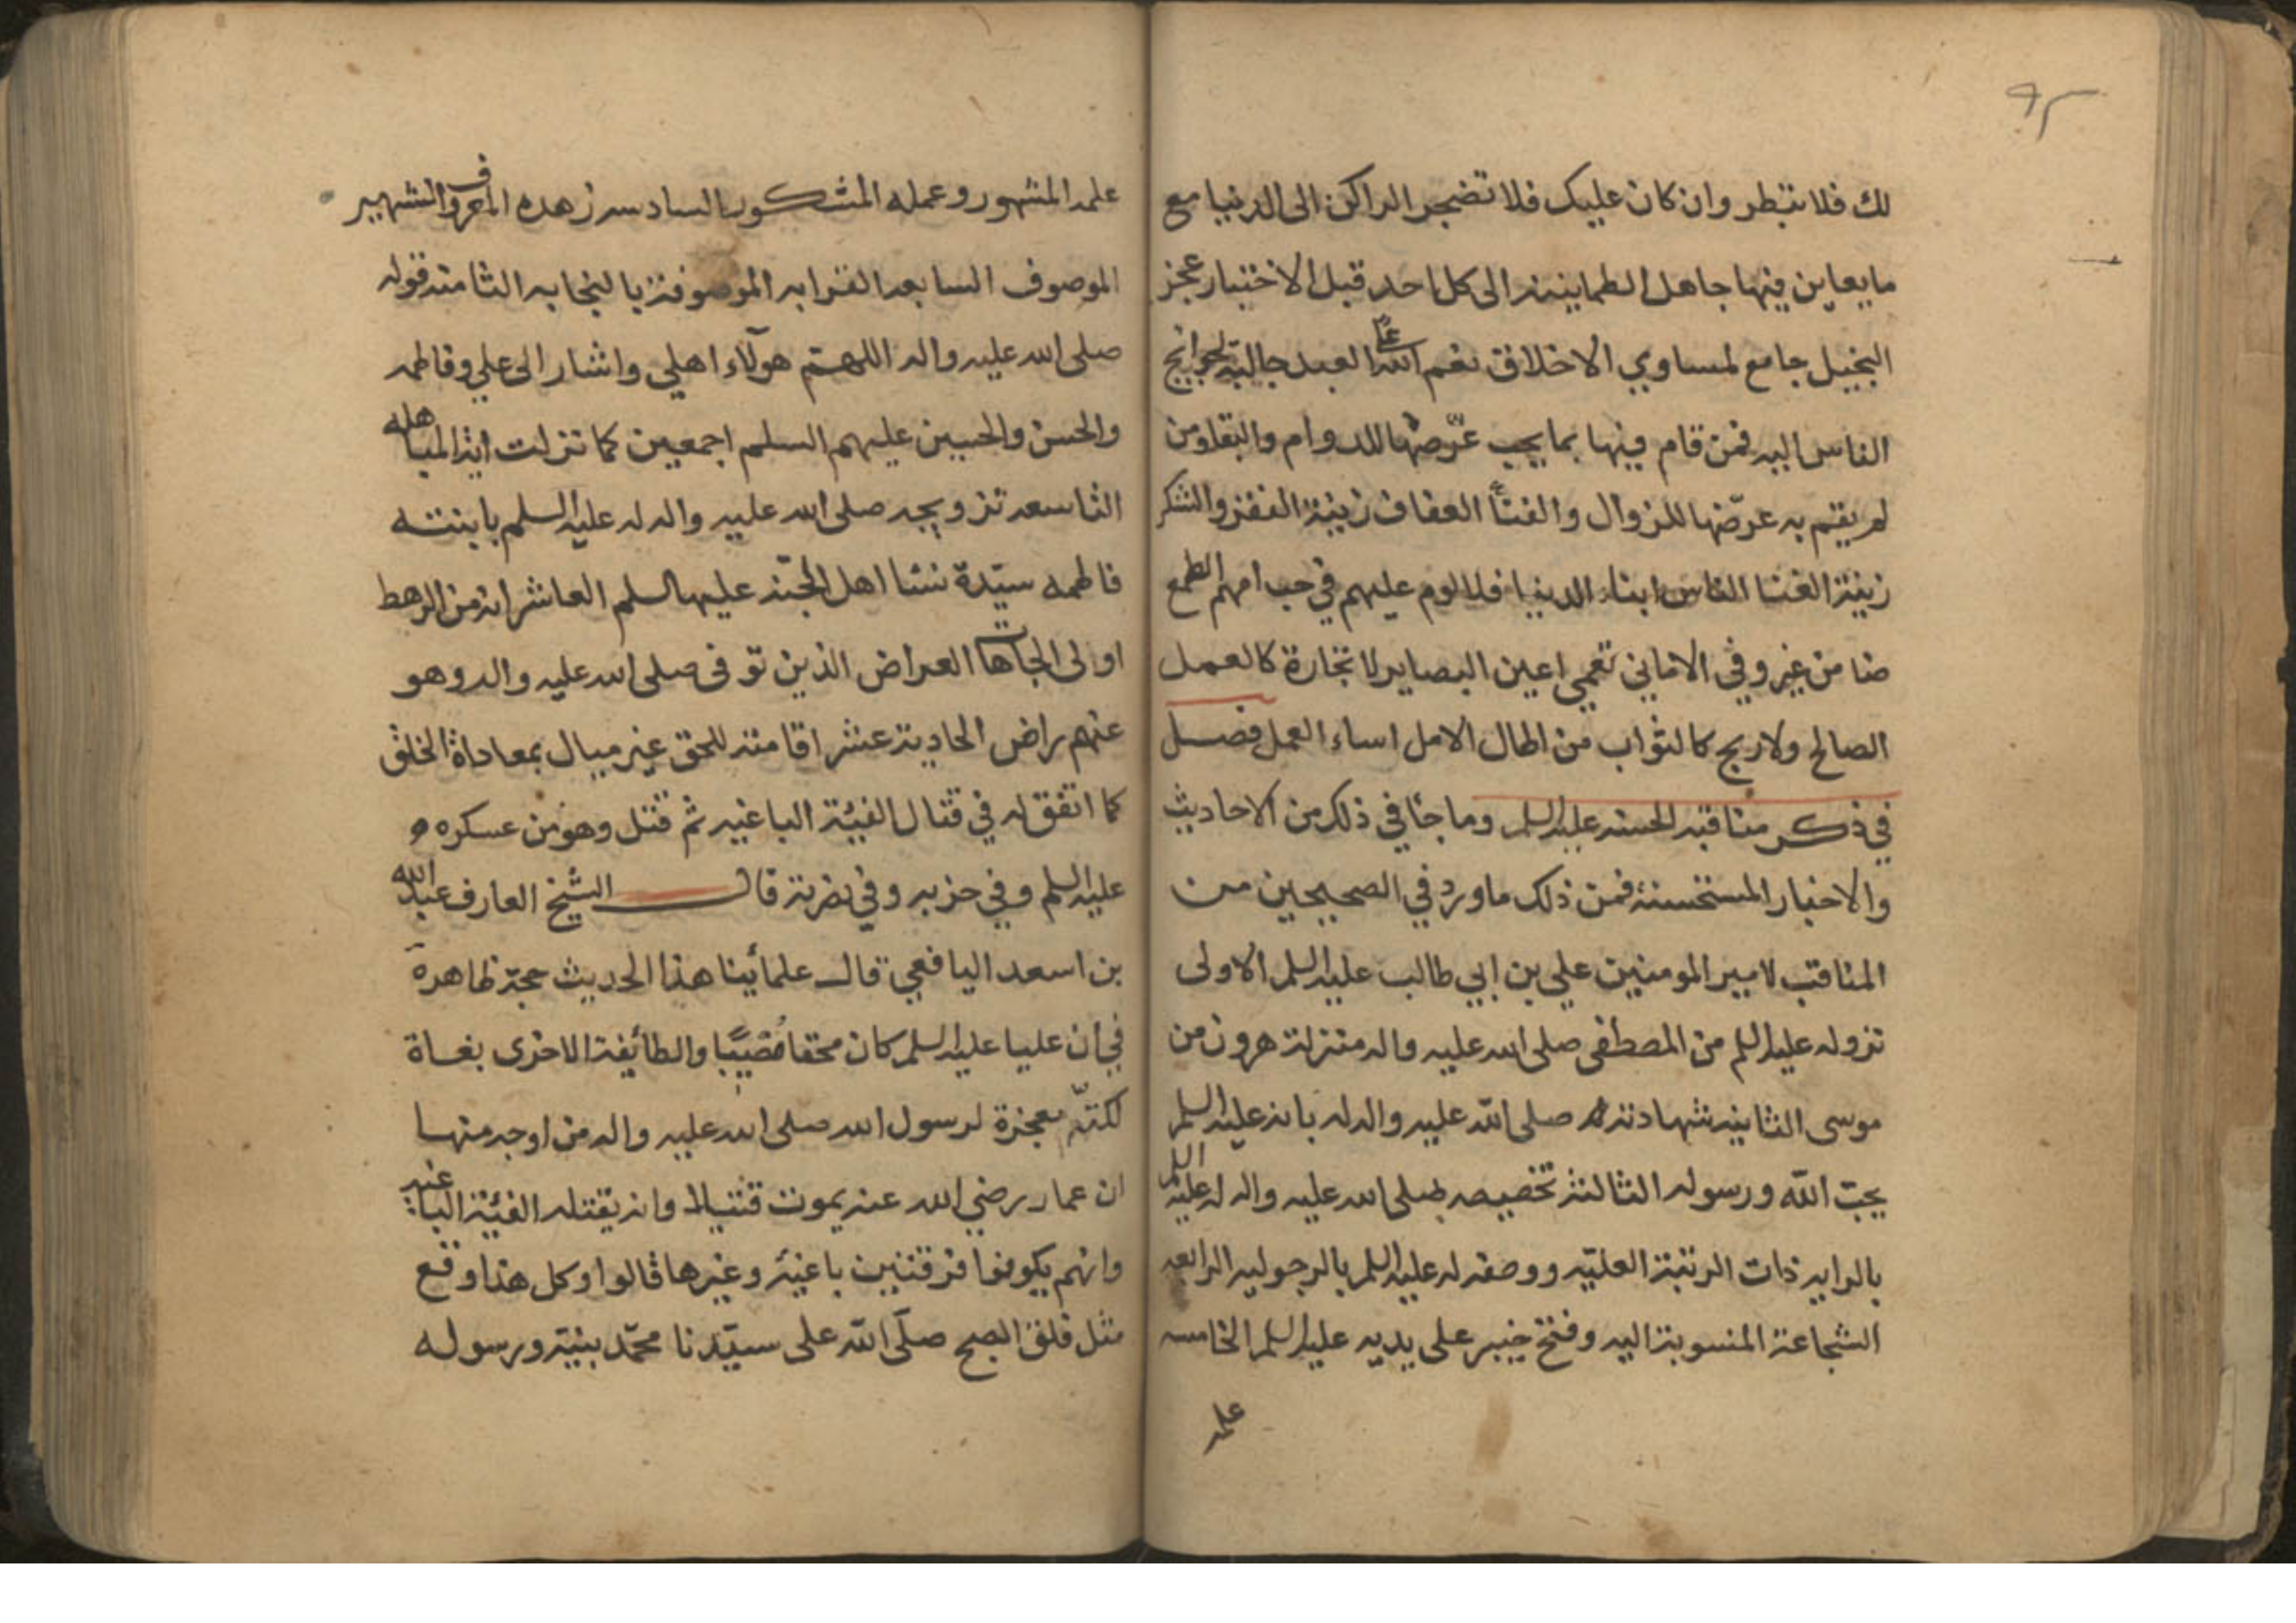 ٩٢
لك فلا تبطر وان كان عليك فلا تضجر الراكن الى الدنيا مع
ما يعاين فيها جاهل الطمانينة الى كل احد قبل الاختبار عجز
البخيل جامع لمساوي الاخلاق نعم الله على العبد جالبة لحوائج
الناس اليه فمن قام فيها بما يجب عرّضها للدوام والبقا ومن
لم يقم به عرّضها للزوال والفنآ العفاف زينة الفقر والشكر
زينة الغنا الناس ابناء الدنيا فلا لوم عليهم في حب امهم الطمع
ضامن غير وفي الاماني تعمي اعين البصاير لا تجارة كالعمل
الصالح ولا ربح كالثواب من اطال الامل اساء العمل فصل
في ذكر مناقبه الحسنه عليه السلم وما جا في ذلك من الاحاديث
والاخبار المستحسنة فمن ذلك ما ورد في الصحيحين من
المناقب لامير المومنين علي بن ابي طالب عليه السلم الاولى
نزوله عليه السلم من المصطفى صلى الله عليه واله منزلة هرون من
موسى الثانيه شهادته صلى الله عليه واله له بانه عليه السلم
يحبّ الله ورسوله الثالثة تخصيصه صلى الله عليه واله له عليه السلم
بالرايه ذات الرتبة العليّه ووصفه له عليه السلم بالرجوليه الرابعه
الشجاعة المنسوبة اليه وفتح خيبر على يديه عليه السلم الخامسه
علمه
علمه المشهور وعمله المشكور السادسه زهده المعروف الشهير
الموصوف السابعه القرابه الموصوفة بالنجابه الثامنه قوله
صلى الله عليه واله اللهم هولآء اهلي واشار الى علي وفاطمه
والحسن والحسين عليهم السلم اجمعين كما نزلت اية المباهله
التاسعه تزويجه صلى الله عليه واله له عليه السلم بابنته
فاطمه سيّدة نسا اهل الجنّه عليها السلم العاشر انه من الرهط
اولى العراض الذين توفى صلى الله عليه واله وهو
عنهم راض الحادية عشر اقامته للحق غير مبال بمعاداة الخلق
كما اتفق له في قتال الفئة الباغيه ثم قتل وهو من عسكره
عليه السلم وفي حزبه وفي نصرته قال الشيخ العارف عبد الله
بن اسعد اليافعي قال علمائنا هذا الحديث حجة ظاهرة
في ان عليا عليه السلم كان محقا مصيبًا والطائفة الاخرى بغاة
معجزة لرسول الله صلى الله عليه واله من اوجه منها
ان عمار رضي الله عنه يموت قتيلا وانه يقتله الفئة الباغيه
وانهم يكونوا فرقتين باغية وغيرها قالوا وكل هذا وقع
مثل فلق الصبح صلّى الله على سيّدنا محمّد نبيّه ورسوله